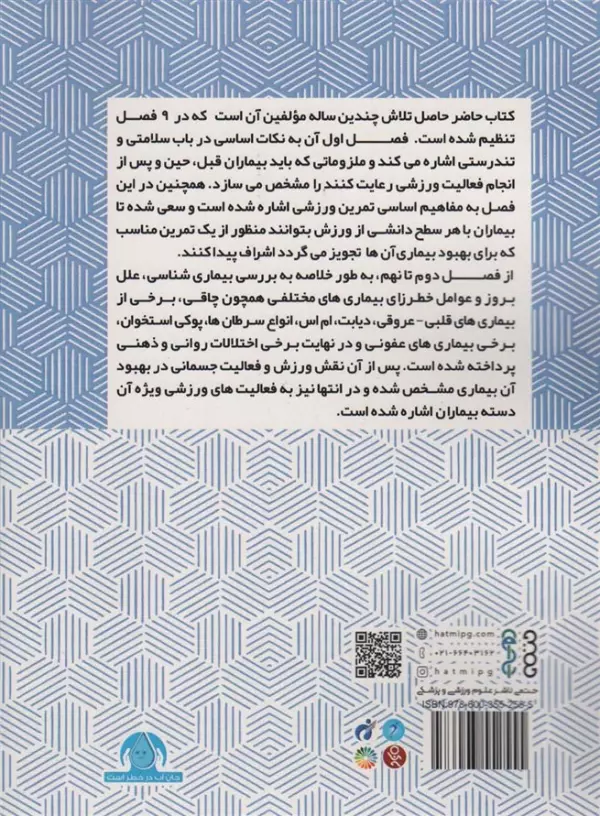 کتاب حاضر حاصل تلاش چندین ساله مؤلفین آن است که در ۹ فصل
تنظیم شده است. فصل اول آن به نکات اساسی در باب سلامتی و
تندرستی اشاره می کند و ملزوماتی که باید بیماران قبل، حین و پس از
انجام فعالیت ورزشی رعایت کنند را مشخص می سازد. همچنین در این
فصل به مفاهیم اساسی تمرین ورزشی اشاره شده است و سعی شده تا
بیماران با هر سطح دانشی از ورزش بتوانند منظور از یک تمرین مناسب
که برای بهبود بیماری آن ها تجویز می گردد اشراف پیدا کنند.
از فصل دوم تا نهم، به طور خلاصه به بررسی بیماری شناسی، علل
بروز و عوامل خطرزای بیماری های مختلفی همچون چاقی، برخی از
بیماری های قلبی-عروقی، دیابت، ام اس، انواع سرطان ها، پوکی استخوان،
برخی بیماری های عفونی و در نهایت برخی اختلالات روانی و ذهنی
پرداخته شده است. پس از آن نقش ورزش و فعالیت جسمانی در بهبود
آن بیماری مشخص شده و در انتها نیز به فعالیت های ورزشی ویژه آن
دسته بیماران اشاره شده است.
hatmipg.com
۰۲۱-۶۶۴۰۳۱۶۲
hatmipg
حتمی
حتمی ناشر علوم ورزشی و پزشکی
ISBN:978-600-355-258-5
جان آب در خطر است